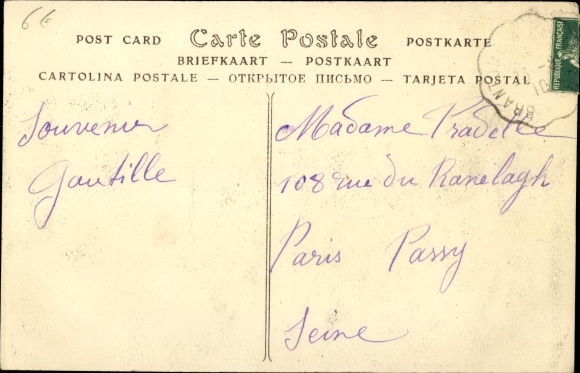 6€
POST CARD Carte Postale POSTKARTE
BRIEFKAART — POSTKAART
CARTOLINA POSTALE — ОТКРЫТОЕ ПИСЬМО — TARJETA POSTAL
REPUBLIQUE FRANÇAISE
BRAN
Souvenir
Gautille
Madame Pradelle
108 rue du Ranelagh
Paris Passy
Seine